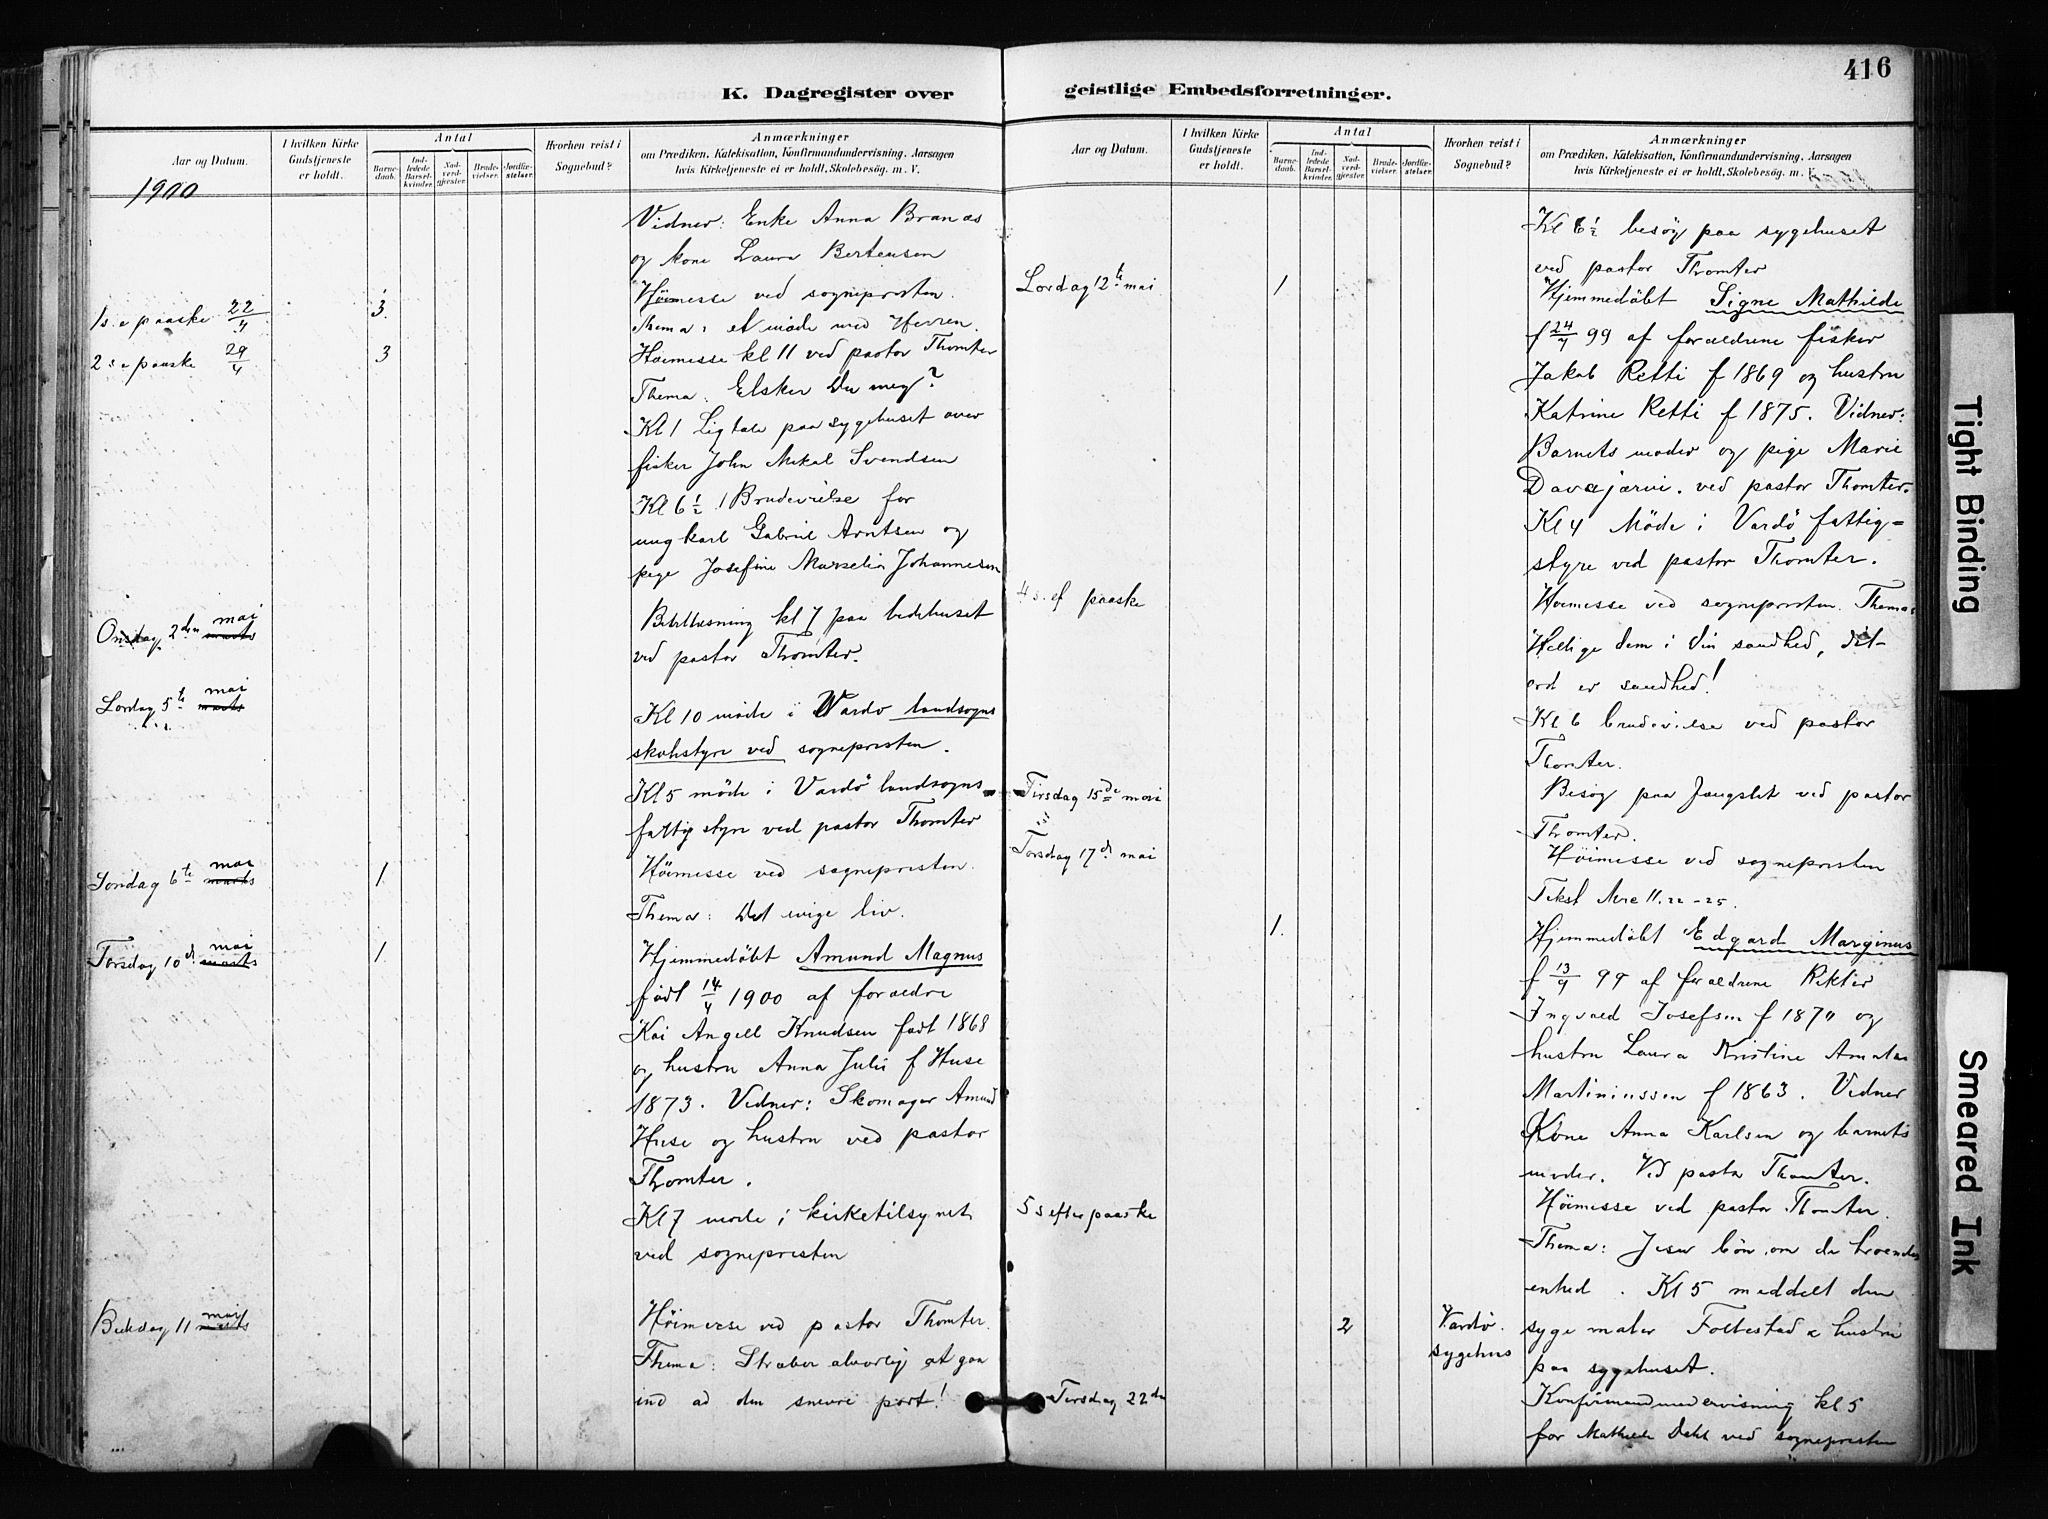 416
K. Dagregister over geistlige Embedsforretninger.
Aar og Datum.
I hvilken Kirke Gudstjeneste er holdt.
Antal
Barne-daab.
Ind-ledede Barsel-kvinder.
Nad-verd-gjester.
Brude-vielser.
Jordfæ-stelser.
Hvorhen reist i Sognebud?
Anmærkninger
om Prædiken, Katekisation, Konfirmandundervisning. Aarsagen
hvis Kirketjeneste ei er holdt, Skolebesøg. m. V.
1900
Vidner: Enke Anna Branæs
og kone Laura Bertensen
1 s. e paaske 22/4 3. Höimesse ved sognepresten.
Thema: et møde med Herren.
2 s e paaske 29/4 3 Höimesse kl 11 ved pastor Thomter
Thema: Elsker Du meg?
Kl 1 Ligtale paa sygehuset over
fisker John Mikal Svendsen
Kl 6 1/2 1 Brudevielse for
ungkarl Gabriel Arntsen og
pige Josefine Johannesen
Onsdag 2den marts mai Bibellæsning kl 7 paa bedehuset
ved pastor Thomter.
Lørdag 5te marts mai Kl 10 møde i Vardø landsogns
skolestyre ved sognepresten.
Kl 5 møde i Vardö landsogns
fattigstyre ved pastor Thomter
Søndag 6te marts mai 1. Höimesse ved sognepresten.
Thema: Det evige liv.
Torsdag 10d marts mai 1. Hjemmedöbt Amund Magnus
født 14/4 1900 af forældre
Kai Angell Knudsen født 1868
og hustru Anna Julie f Huse
1873. Vidner: Skomager Amund
Huse og hustru ved pastor
Thomter.
Kl 7 møde i kirketilsynet
ved sognepresten
Bededag 11 marts mai Höimesse ved pastor Thomter.
Thema: Stræber alvorlig at gaa
ind ad den snevre port!
Aar og Datum.
I hvilken Kirke Gudstjeneste er holdt.
Antal
Barne-daab.
Ind-ledede Barsel-kvinder.
Nad-verd-gjester.
Brude-vielser.
Jordfæ-stelser.
Hvorhen reist i Sognebud?
Anmærkninger
om Prædiken, Katekisation, Konfirmandundervisning. Aarsagen
hvis Kirketjeneste ei er holdt, Skolebesøg. m.
Kl 6 1/2 besög paa sygehuset
ved pastor Thomter
Lørdag 12te mai 1 Hjemmedöbt Signe Mathilde
99 af forældrene fisker
Jakob Retti f 1869 og hustru
Katrine Retti f 1875. Vidner:
Barnets moder og pige Marie
ved pastor Thomter.
Kl 4 Möde i Vardö fattig=
styre ved pastor Thomter.
4 s. ef paaske Höimesse ved sognepresten. Thema:
Hellige dem i din sandhed, dit
ord er sandhed!
Kl 6 brudevielse ved pastor
Thomter.
Tirsdag 15de mai Besög paa ved pastor
Thomter.
Torsdag 17d mai Höimesse ved sognepresten
Tekst Mrc 11.22-25.
1. Hjemmedöbt Edgard Marginus
99 af forældrene
Ingvald Josefsen f 1870 og
hustru Laura Kristine
Martiniussen f 1863. Vidner
Kone Anna Karlsen og barnets
moder. Ved pastor Thomter.
5 s efter paaske Höimesse ved pastor Thomter.
Thema: Jesu bön om de troendes
enhed. Kl 5 meddelt den
2 Vardø sygehus syge maler Folkestad & hustru
paa sygehuset.
Tirsdag 22de Konfirmandundervisning kl 5
for Mathilde Dahl ved sognepresten
Tight Binding
Smeared Ink